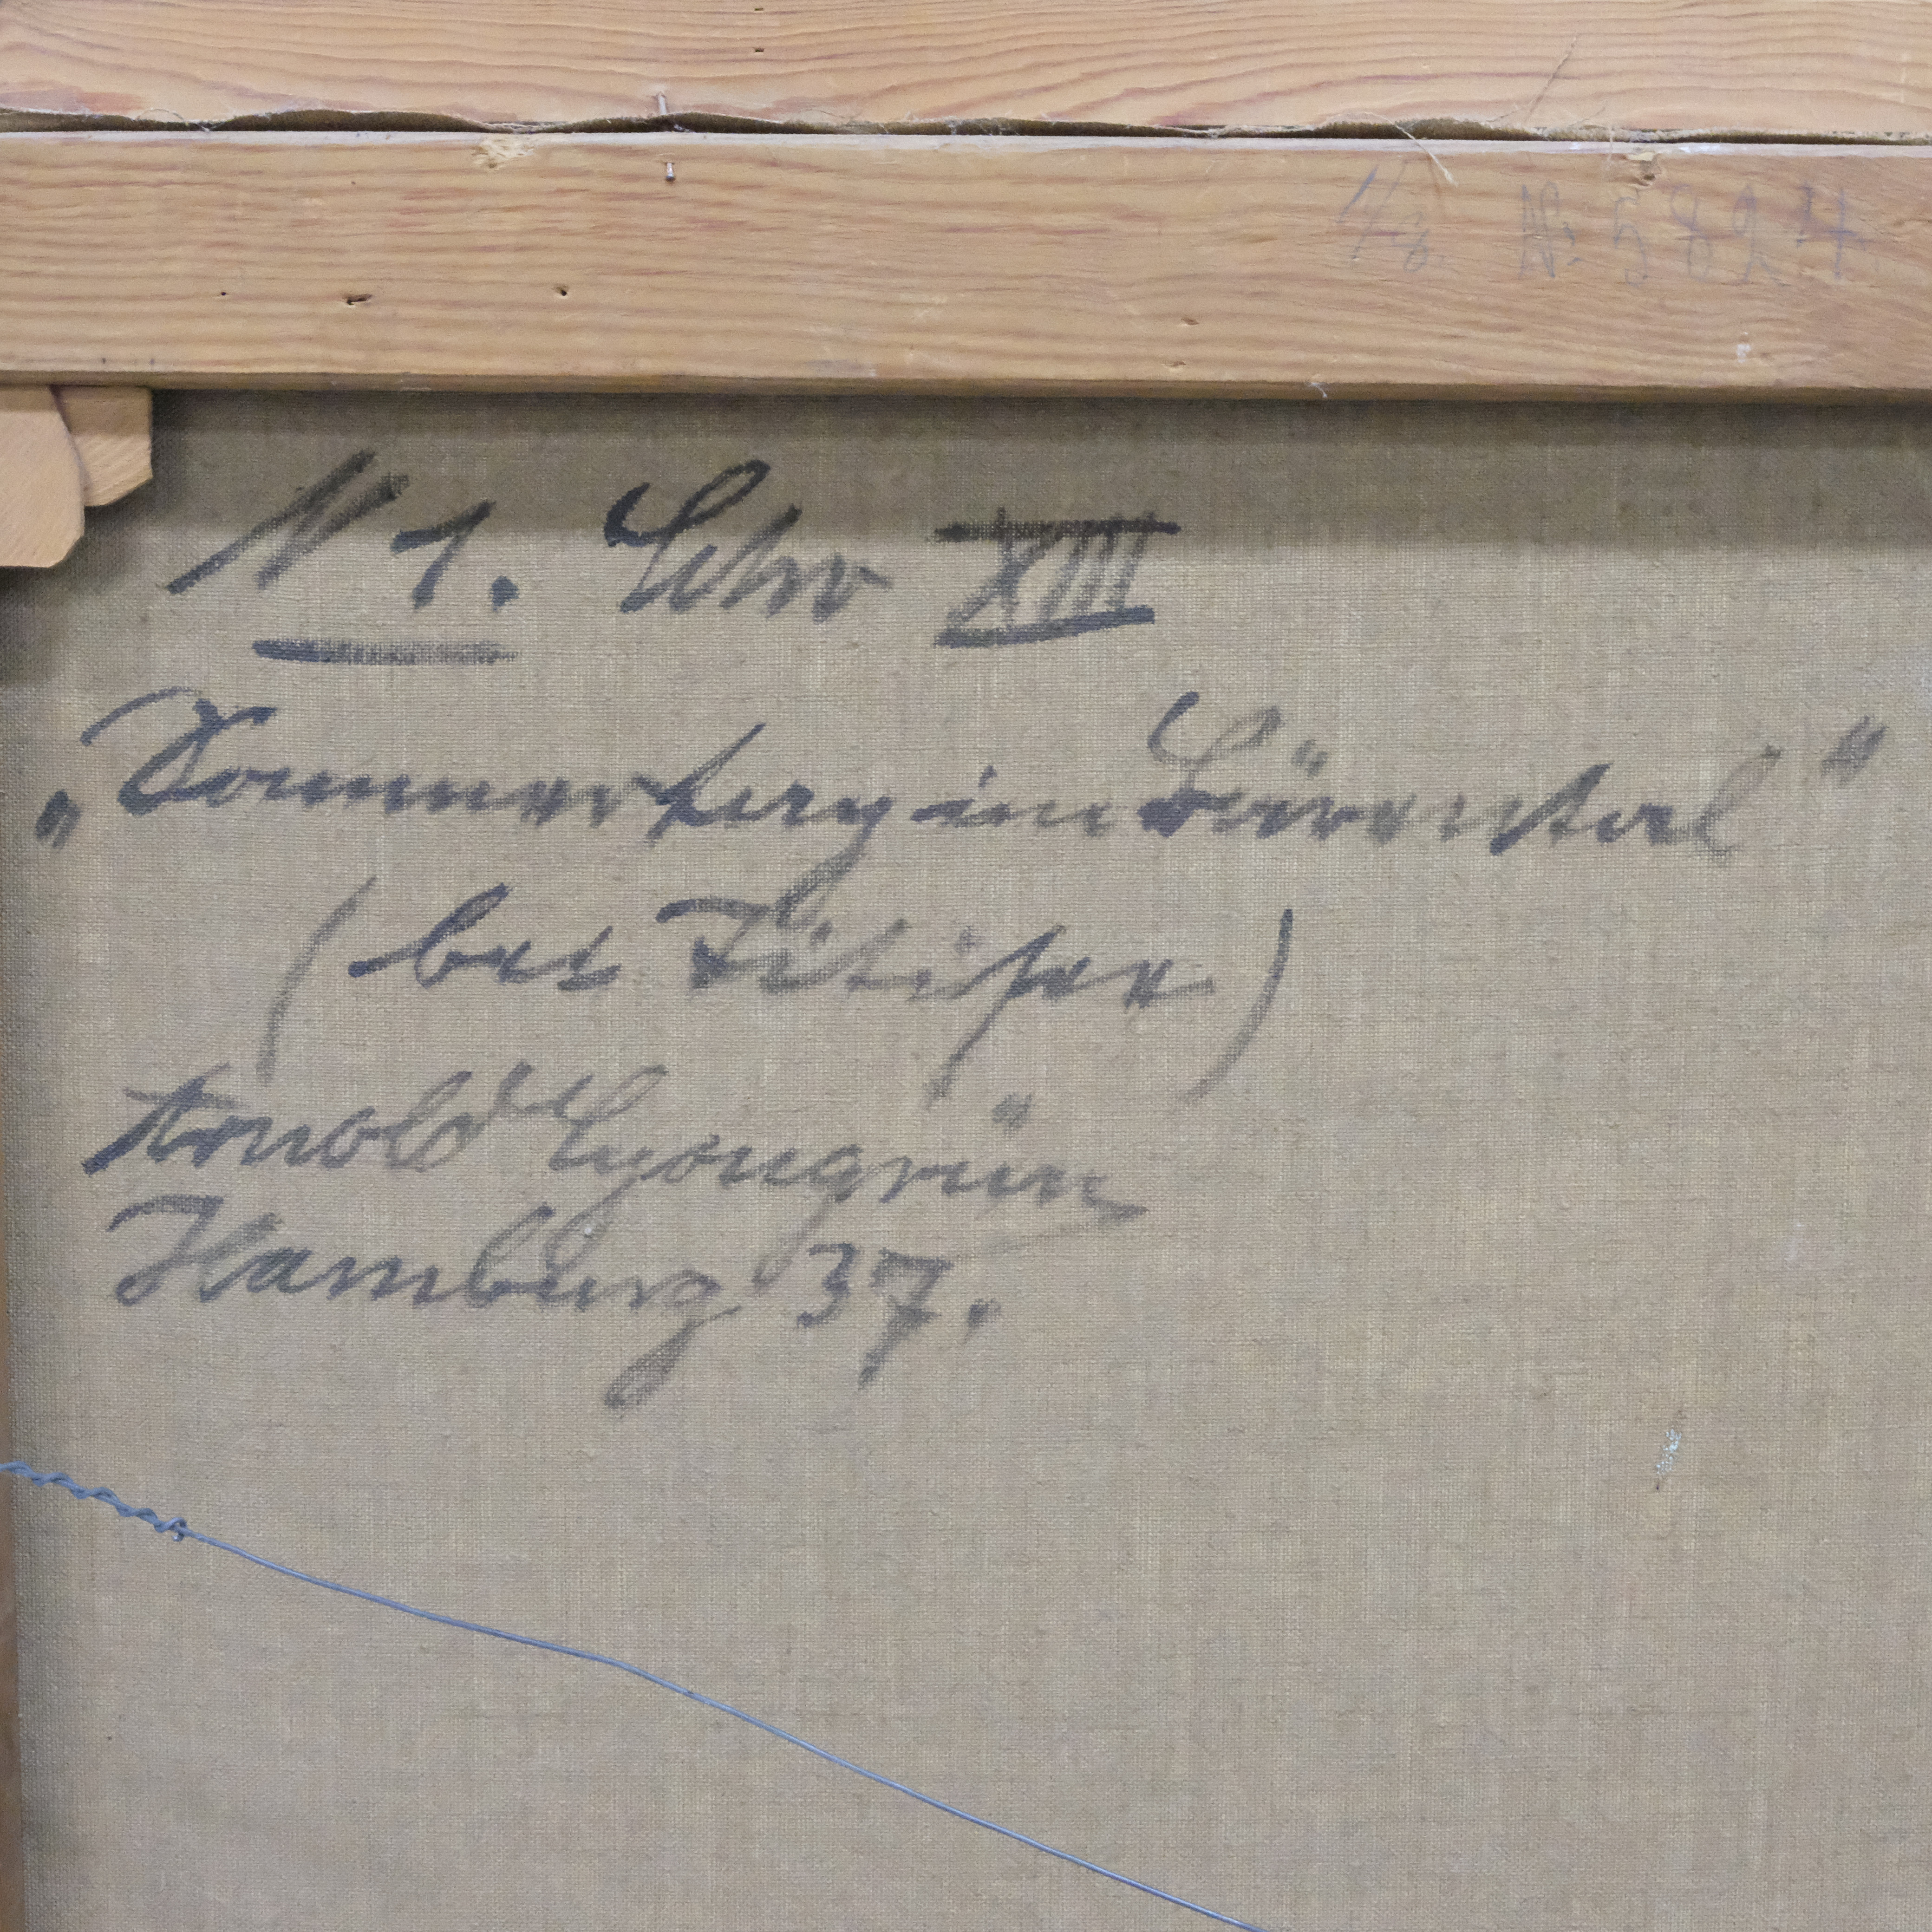 1/8 № 5824
N 1. Schw XIII
„Sommertag im Bärental"
(bei Titisee)
Arnold Lyongrün
Hamburg 37.